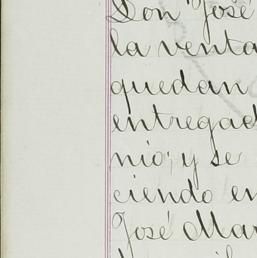 Don José
la venta
quedan
entregad
nio; y se
ciendo en
José Mar